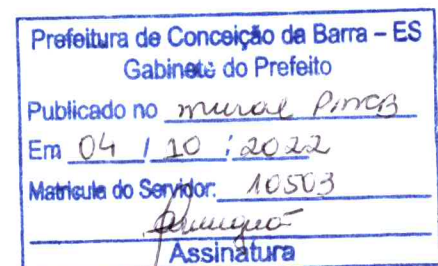 Prefeitura de Conceição da Barra – ES
Gabinete do Prefeito
Publicado no mural PMCB
Em 04 / 10 / 2022
Matricula do Servidor: 10503
Assinatura